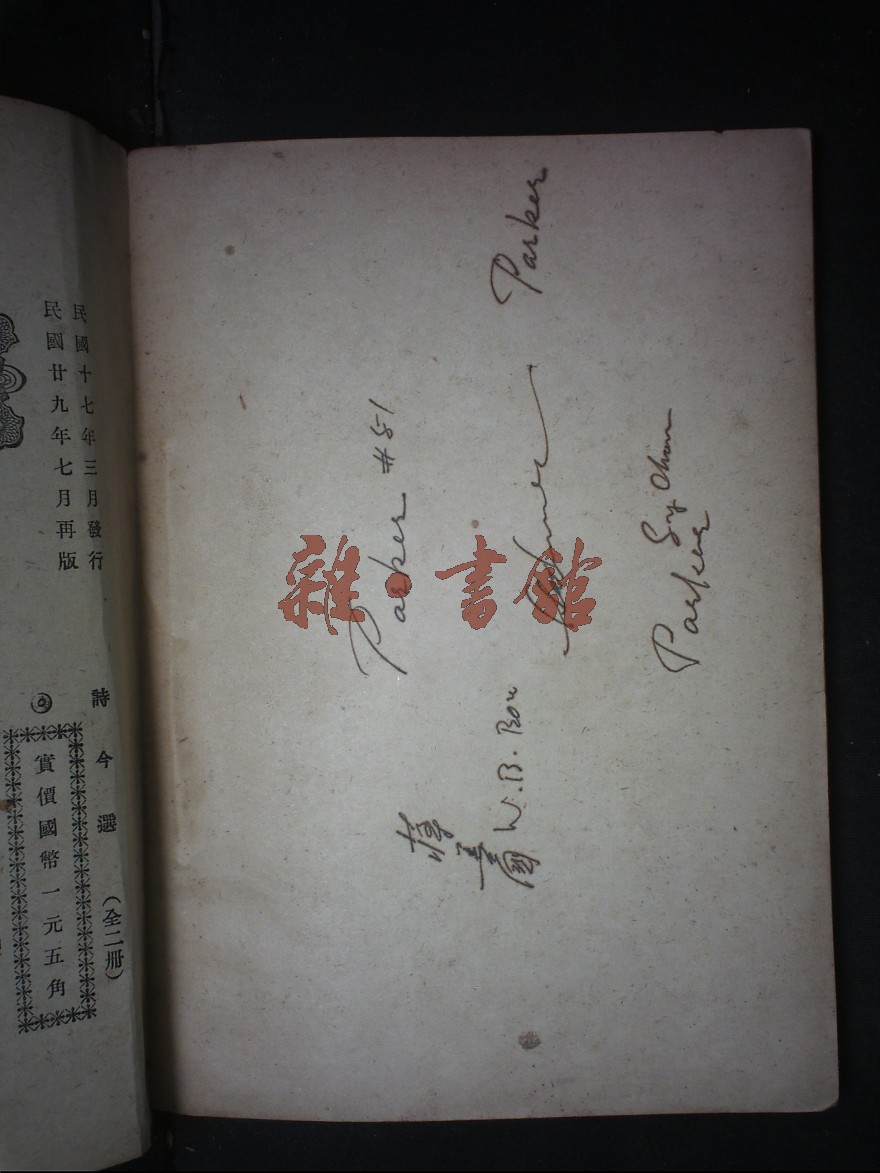 民國十七年三月發行
民國廿九年七月再版
詩今選(全二册)
實價國幣一元五角
Parker
Parker #51
Parker
W. B. Bon
雜·書館